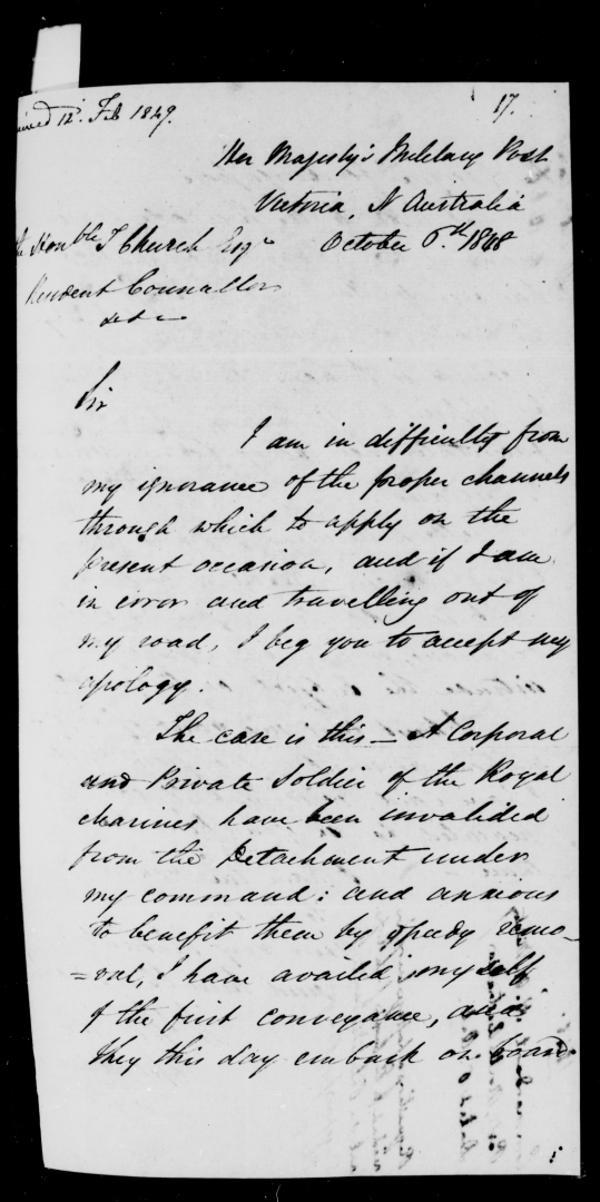 12. Feb 1849.
17.
Her Majesty's Military Post
Victoria, N Australia
Honble T Church Esqr October 6th 1848
Resident Councillor
&c &c
Sir
I am in difficulty from
my ignorance of the proper channels
through which to apply on the
present occasion, and if I am
in error and travelling out of
my road, I beg you to accept my
apology.
The case is this — A Corporal
and Private Soldier of the Royal
Marines have been invalided
from the Detachment under
my command: and anxious
to benefit them by speedy remo-
=val, I have availed myself
of the first conveyance, and
they this day embark on board